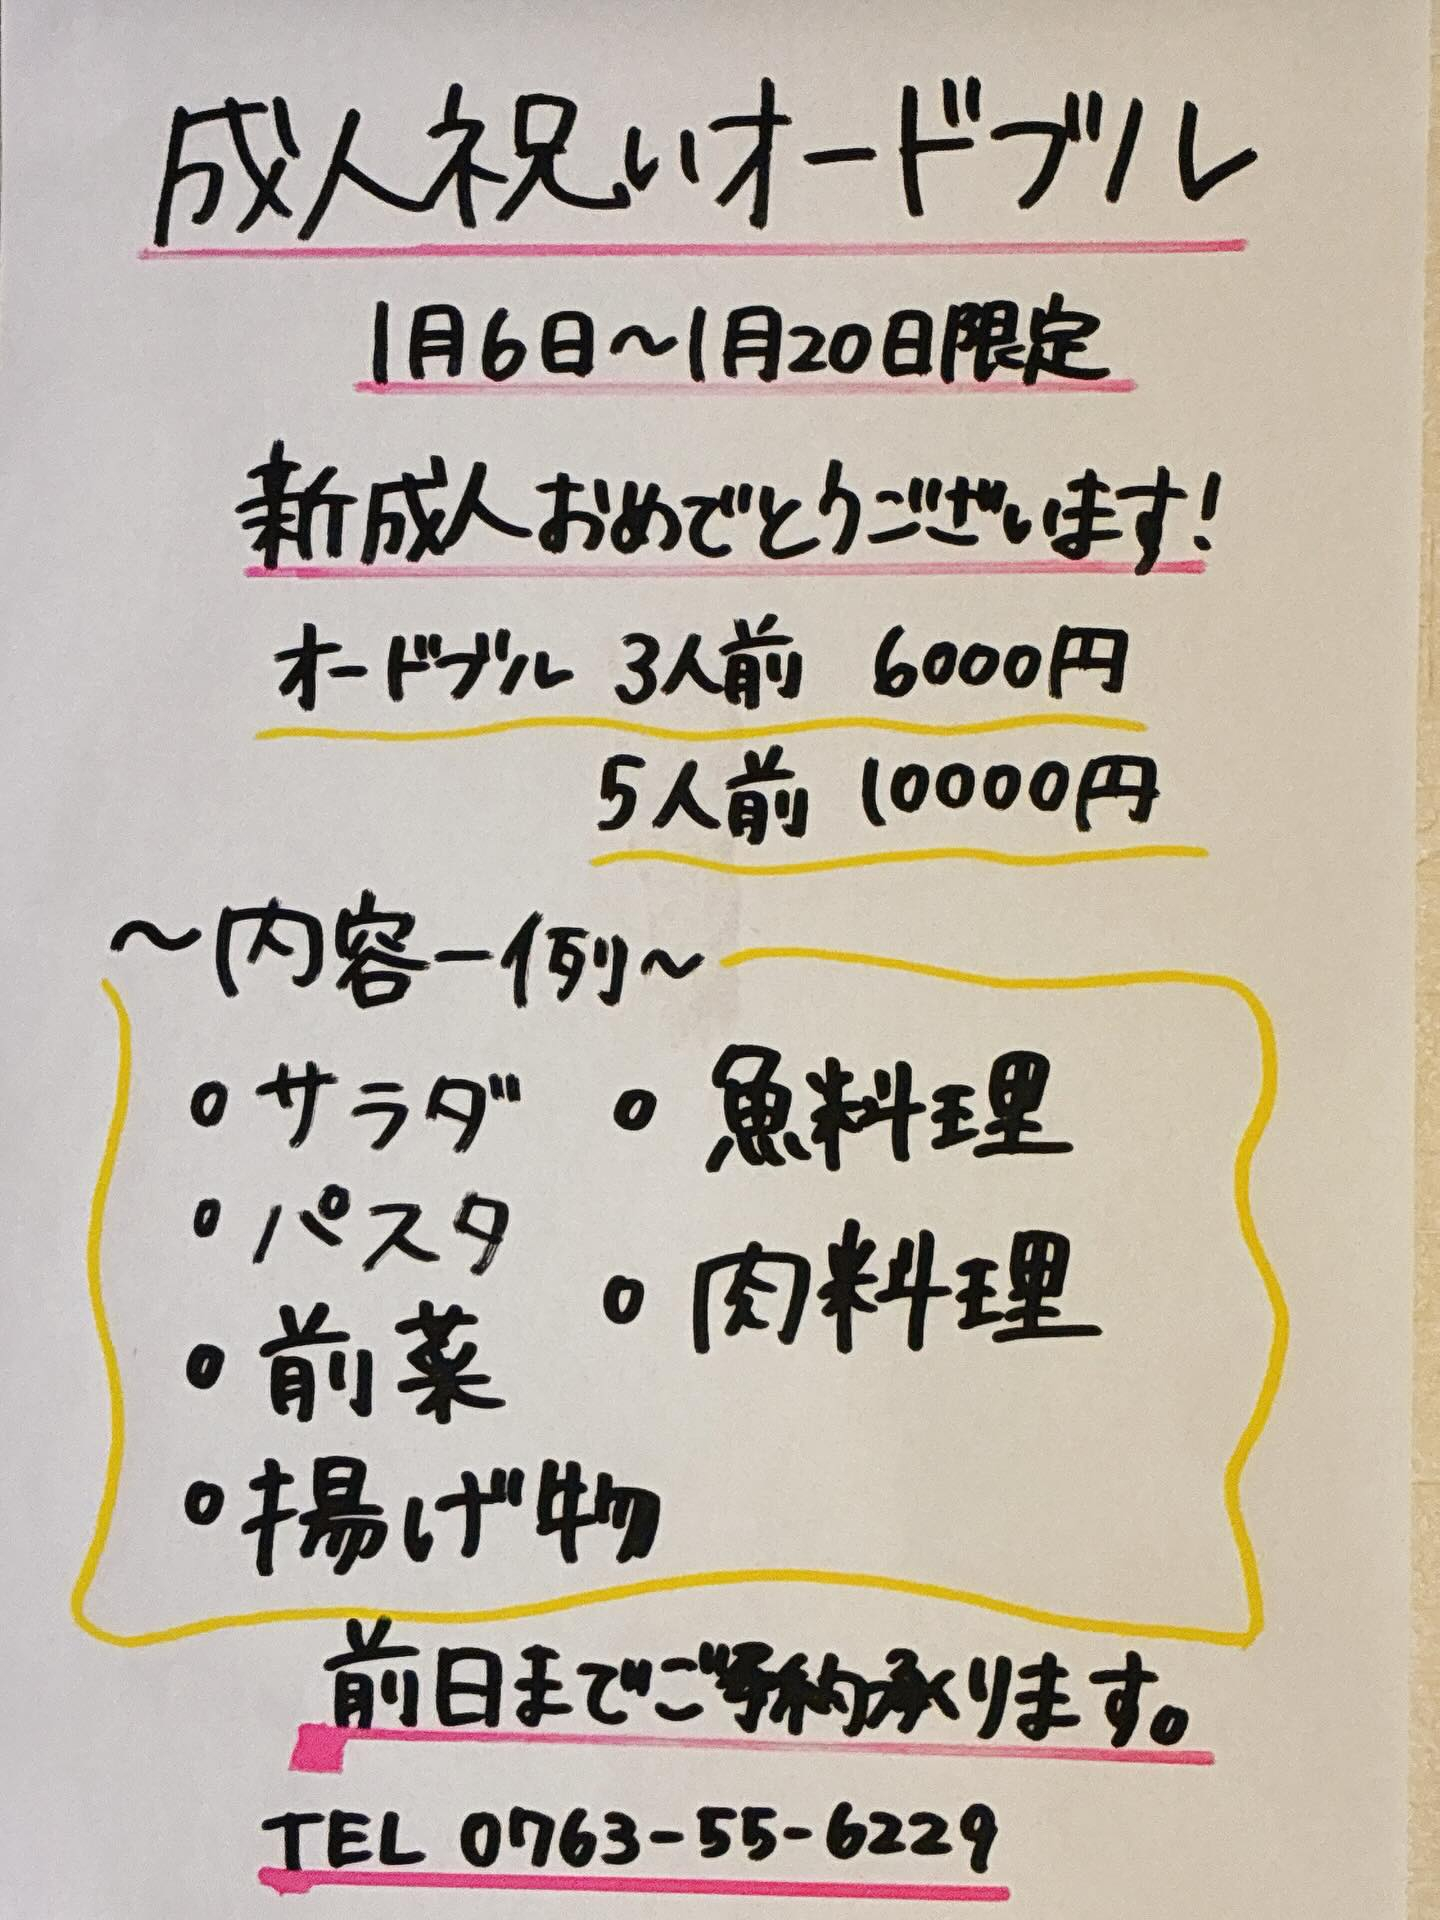 成人祝いオードブル
1月6日～1月20日限定
新成人おめでとうございます!
オードブル 3人前 6000円
5人前 10000円
～内容一例～
・サラダ
・パスタ
・前菜
・揚げ物
・魚料理
・肉料理
前日までご予約承ります。
TEL 0763-55-6229